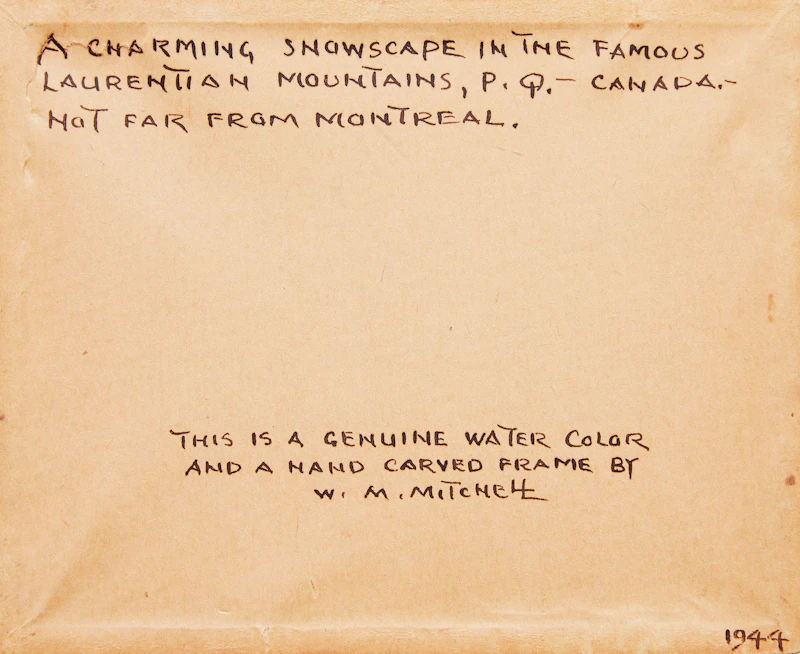 A CHARMING SNOWSCAPE IN THE FAMOUS
LAURENTIAN MOUNTAINS, P. Q.- CANADA.-
NOT FAR FROM MONTREAL.
THIS IS A GENUINE WATER COLOR
AND A HAND CARVED FRAME BY
W. M. MITCHELL
1944